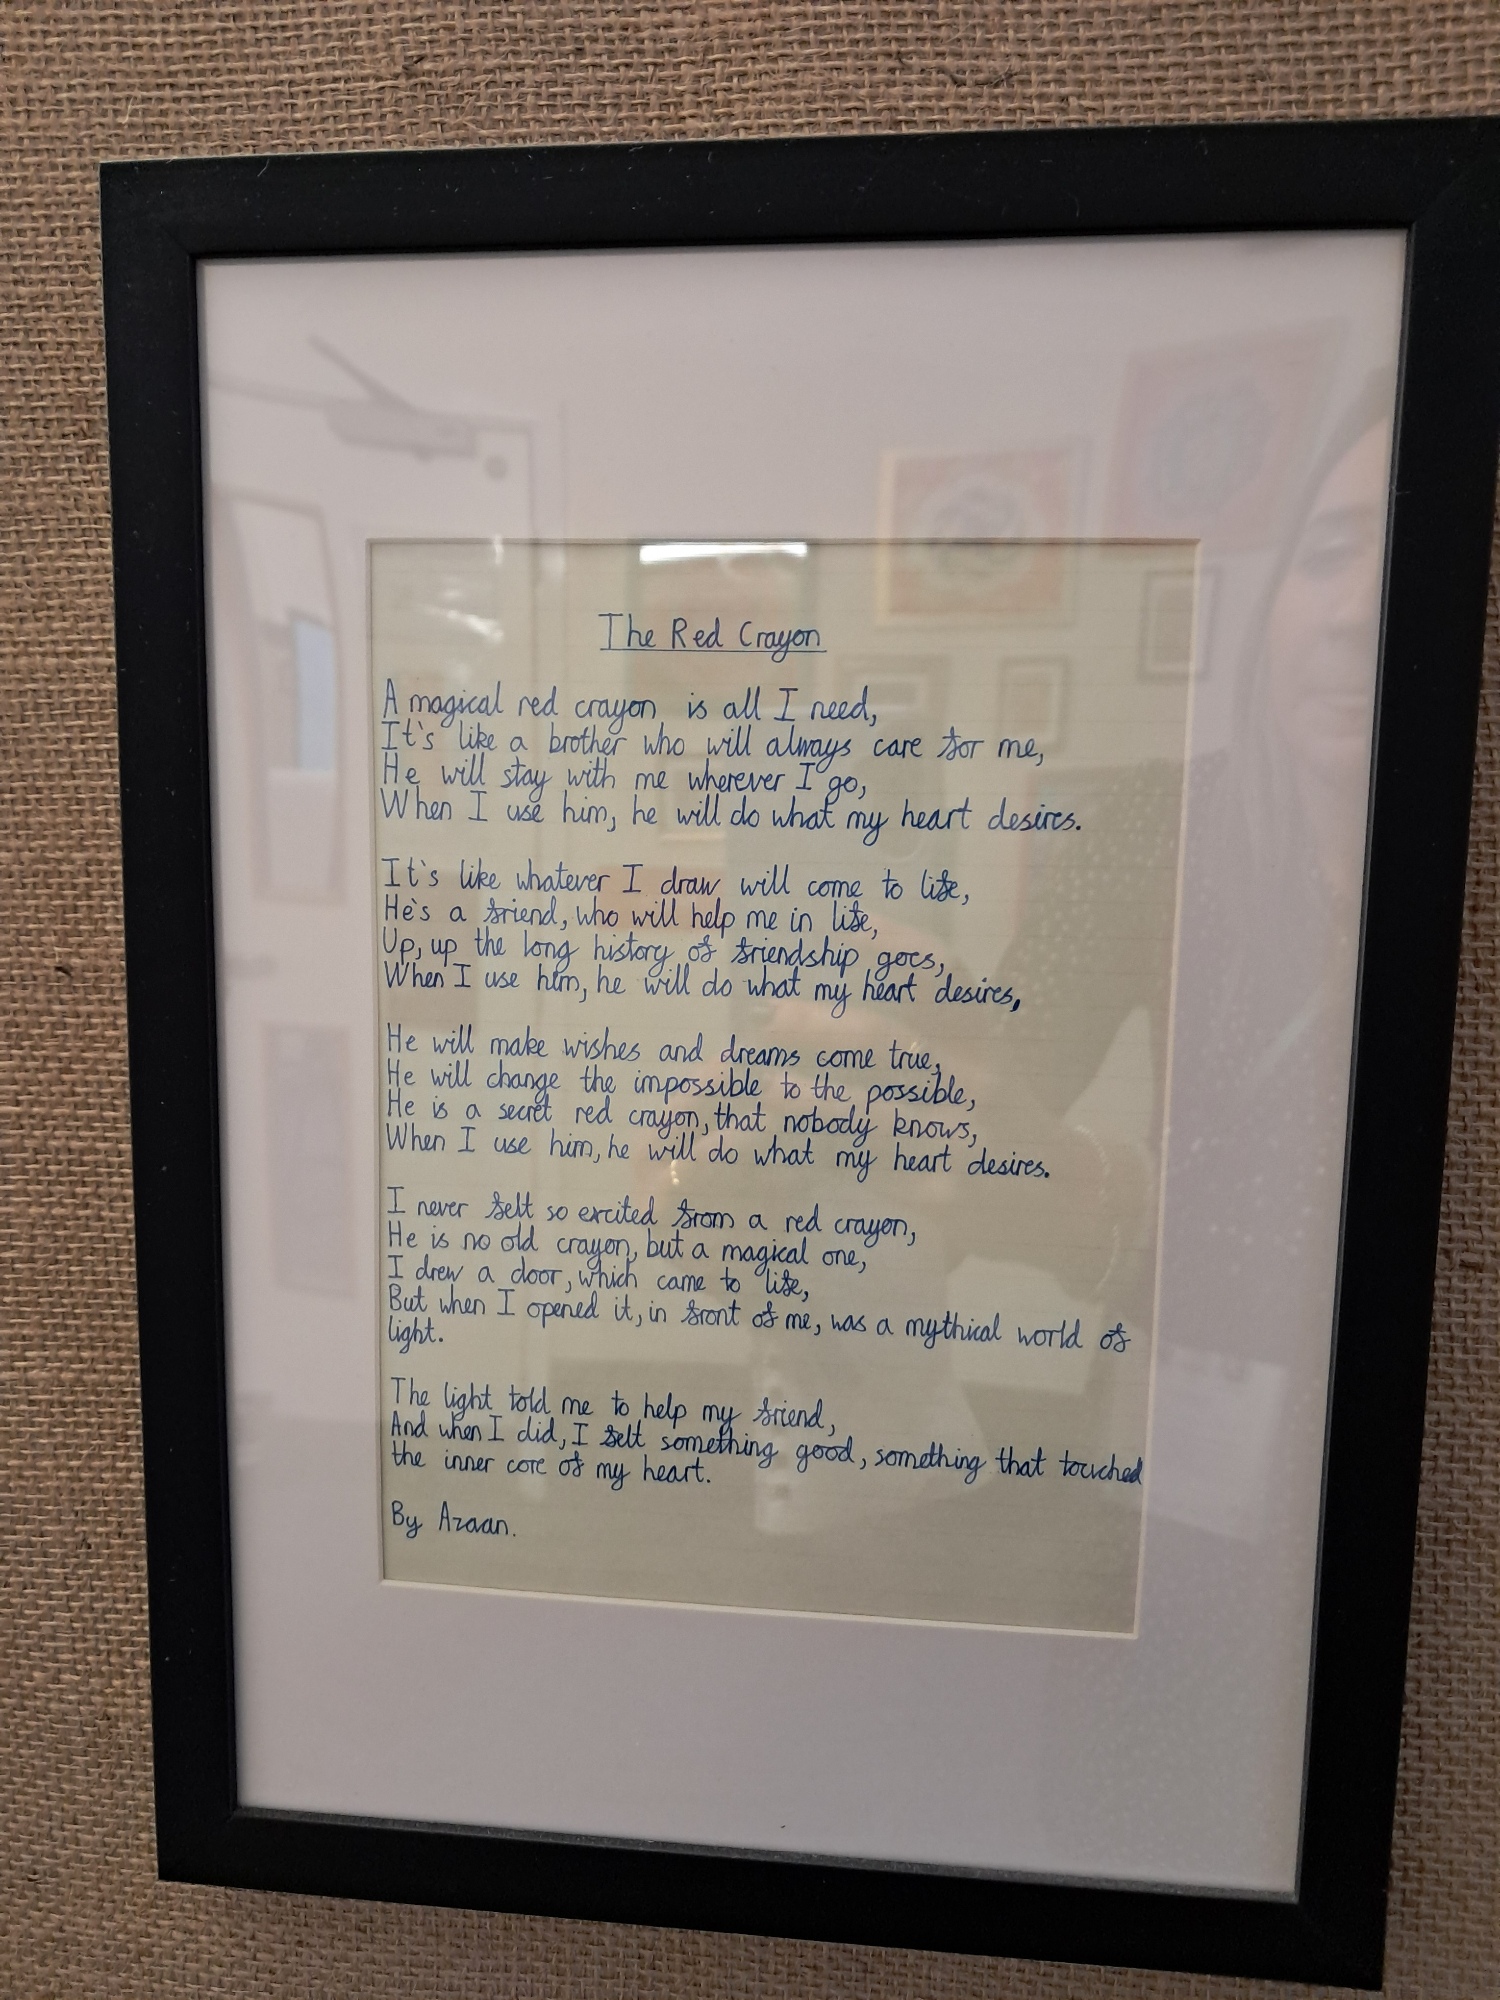 The Red Crayon
A magical red crayon is all I need,
It's like a brother who will always care for me,
He will stay with me wherever I go,
When I use him, he will do what my heart desires.
It's like whatever I draw will come to life,
He's a friend, who will help me in life,
Up, up the long history of friendship goes,
When I use him, he will do what my heart desires,
He will make wishes and dreams come true,
He will change the impossible to the possible,
He is a secret red crayon, that nobody knows,
When I use him, he will do what my heart desires.
I never felt so excited from a red crayon,
He is no old crayon, but a magical one,
I drew a door, which came to life,
But when I opened it, in front of me, was a mythical world of
light.
The light told me to help my friend,
And when I did, I felt something good, something that touched
the inner core of my heart.
By Azaan.